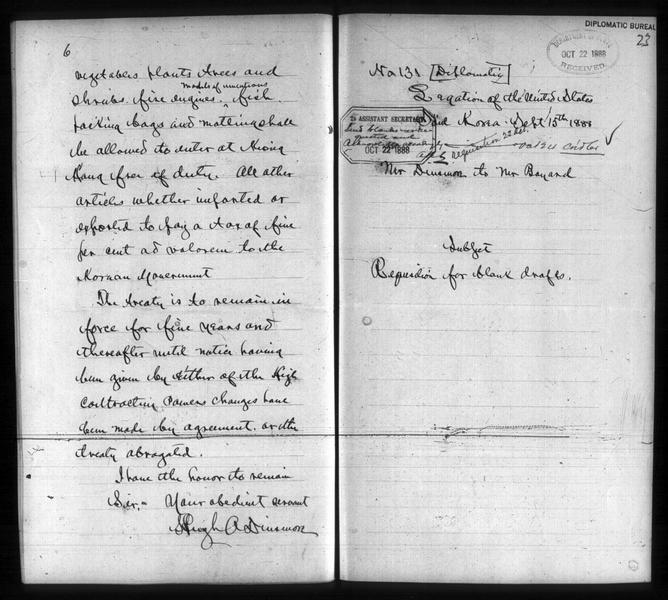 6
vegetables plants trees and
models of inventions
shrubs, fire engines, fish
packing bags and matting shall
be allowed to enter at
free of duty. All other
articles whether imported or
exported to pay a tax of five
per cent ad valorem to the
Korean Government
The treaty is to remain in
force for five years and
thereafter until notice having
been given by either of the High
Contracting Powers changes have
been made by agreement, or the
treaty abrogated.
I have the honor to remain
Sir,- Your obedient servant
Hugh A Dinsmore
DIPLOMATIC BUREAU
23
DEPARTMENT OF STATE
OCT 22 1888
RECEIVED
No 131 Diplomatic
Legation of the United States
Korea Sept 15th 1888
ASSISTANT SECRETARY
OCT 22 1888
requisition
Mr Dinsmore to Mr Bayard
Subject
Requisition for blank drafts.